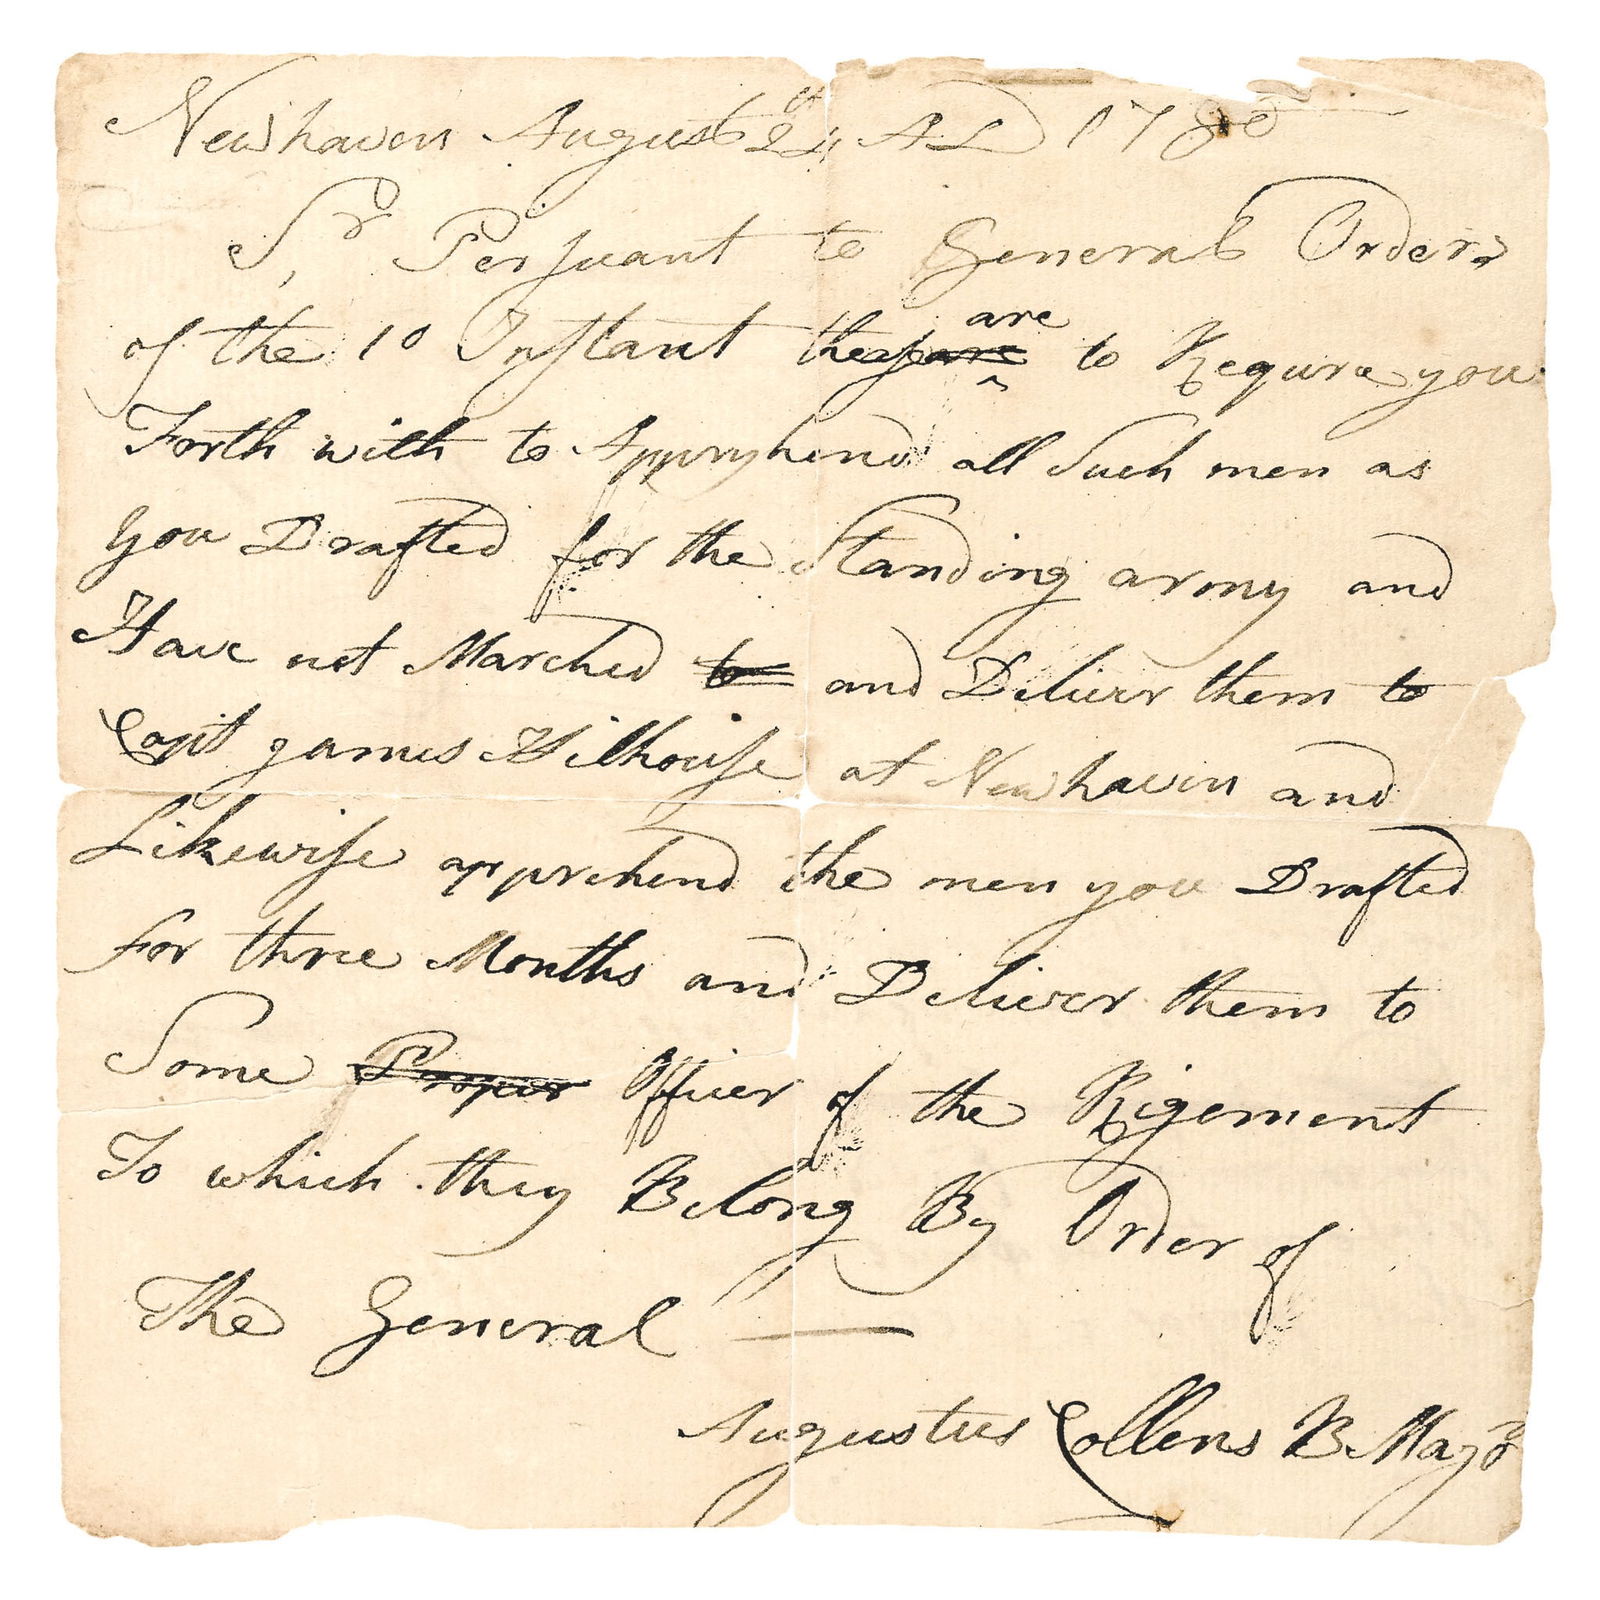 Newhaven August 24th AD 1780
Sr, Persuant to General Orders
of the 10 Instant these are to Requre you
Forth with to Appryhend all Such men as
you Drafted for the Standing army and
Have not Marched to and Deliver them to
Capt James Hilhouse at Newhaven and
Likewise apprehend the men you Drafted
For three Months and Deliver them to
Some Proper Officer of the Rigement
To which they Belong By Order of
The General —
Augustus Collens B Majr